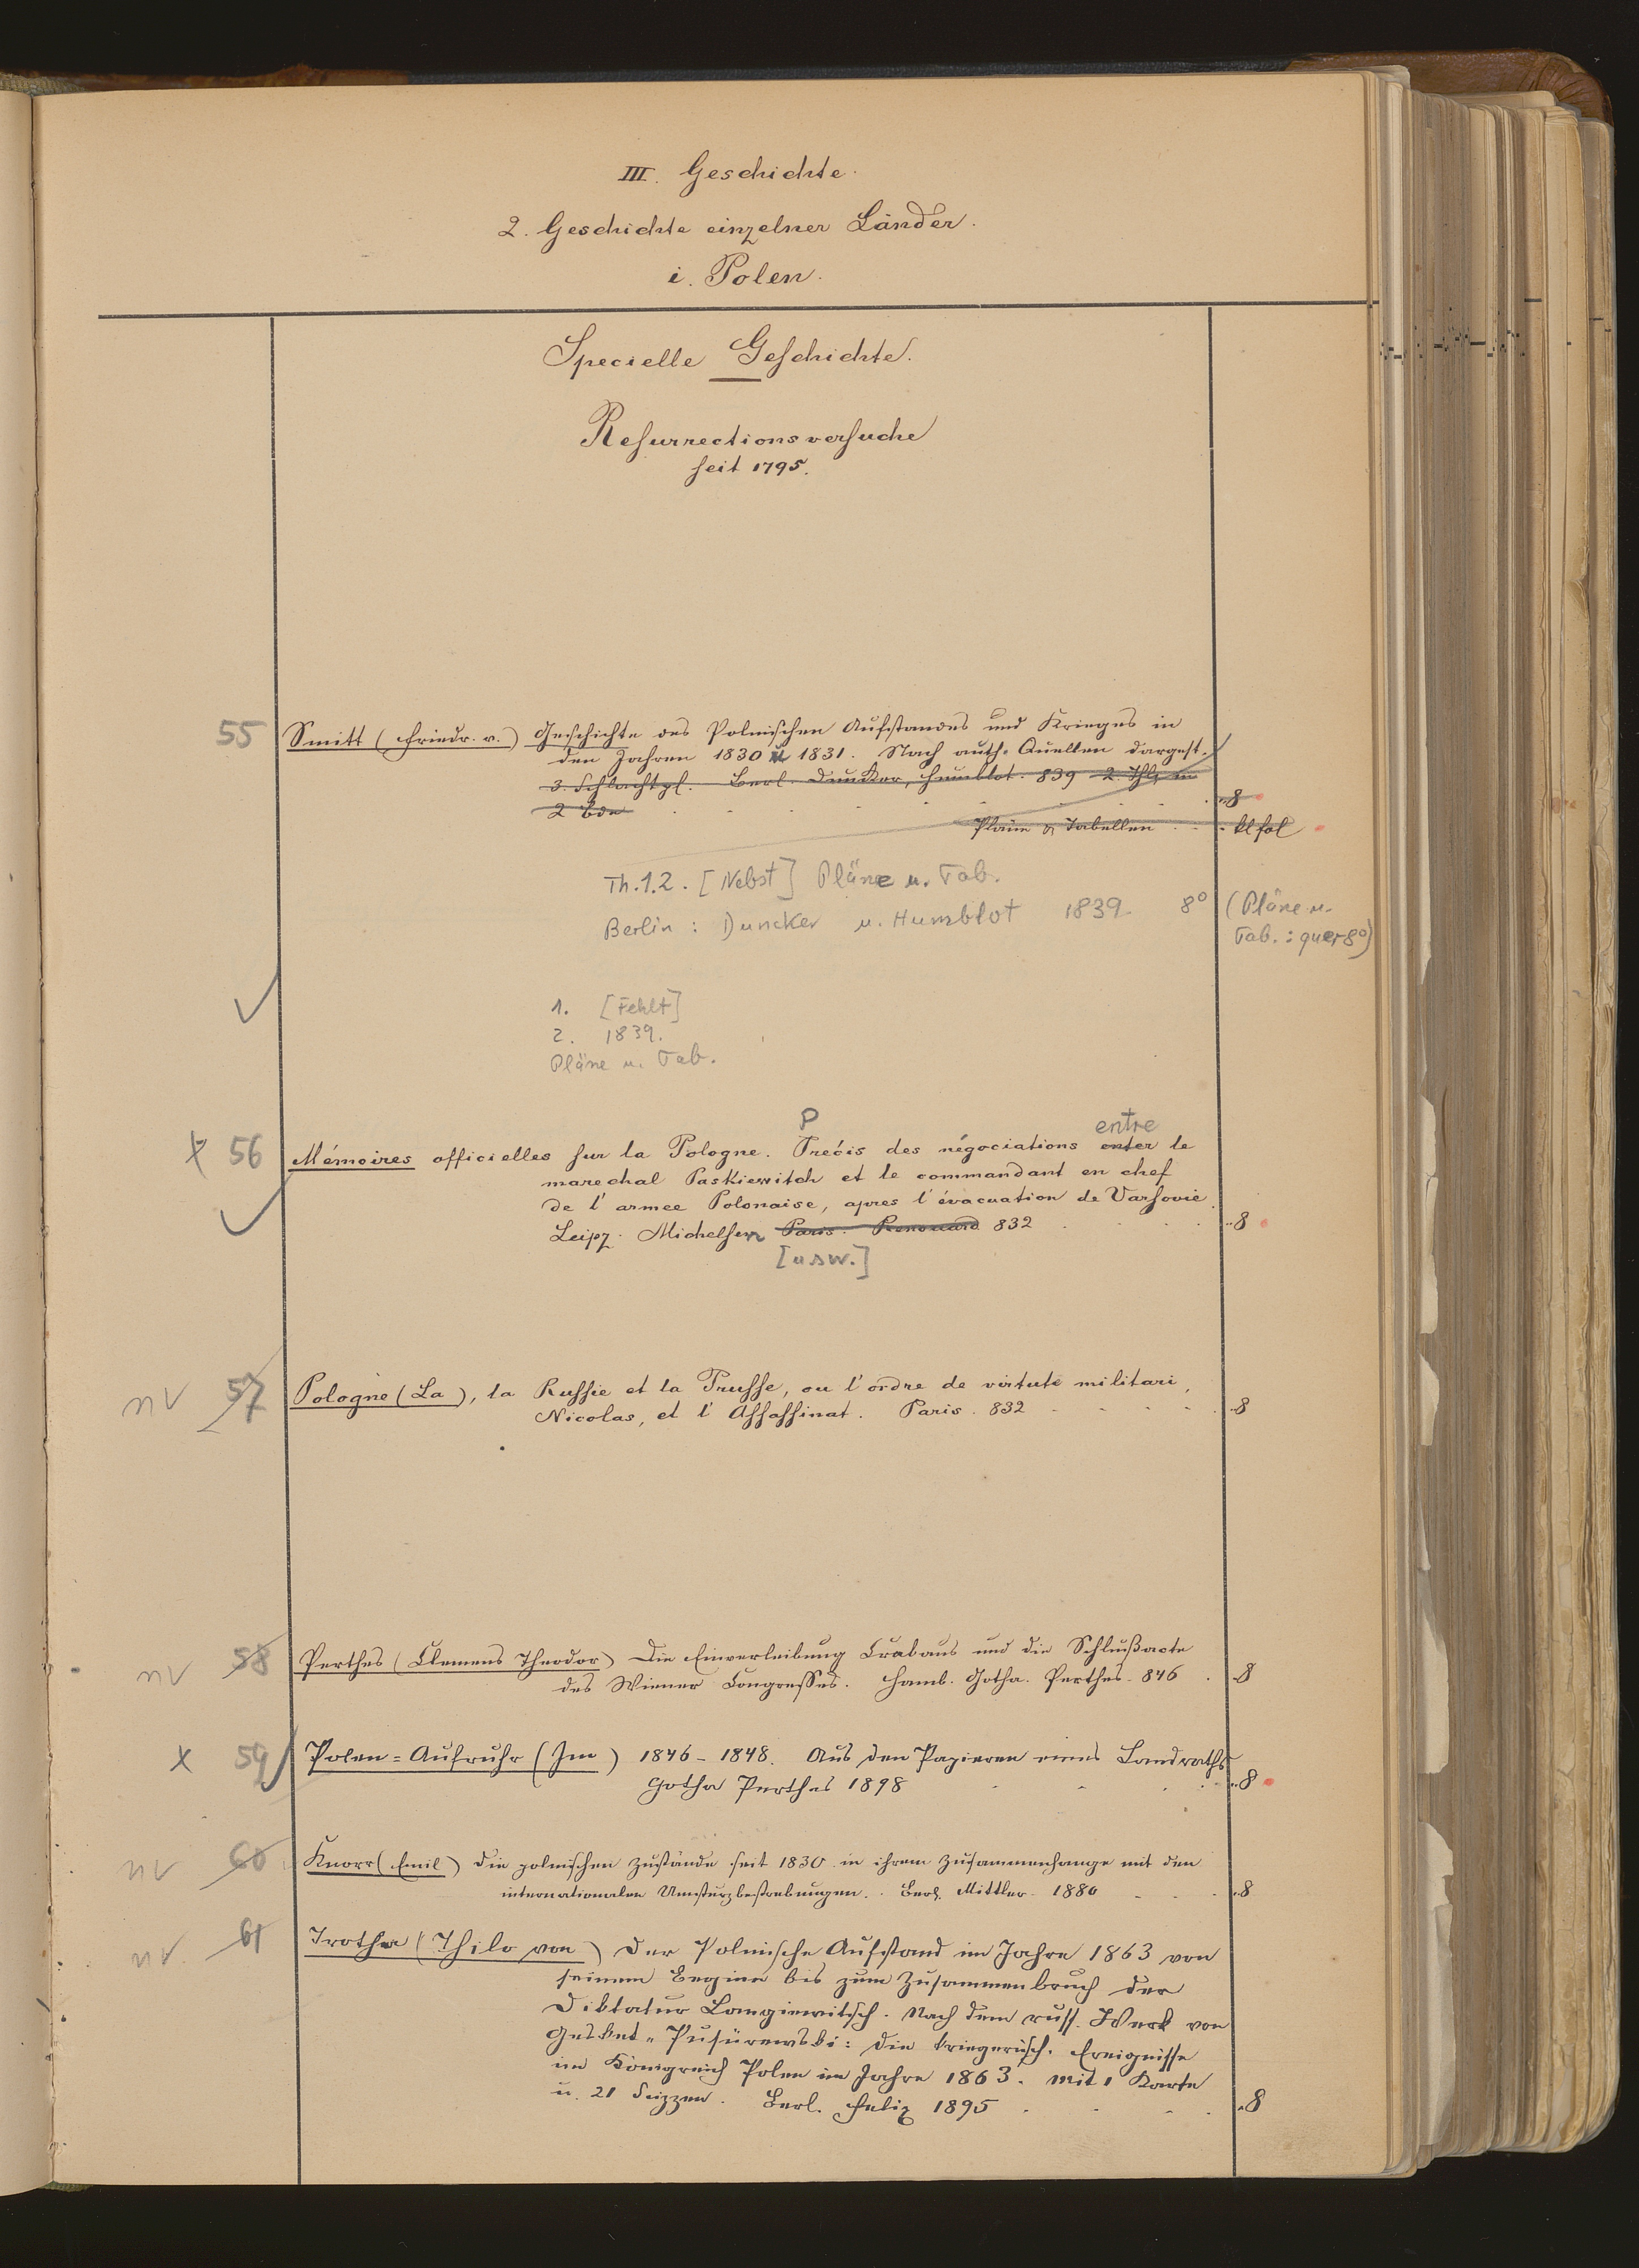 III. Geschichte.
2. Geschichte einzelner Länder.
i. Polen.
Specielle Geschichte.
Resurrectionsversuche
seit 1795.
55 Smitt (Friedr. v.) Geschichte des Polnischen Aufstandes und Krieges in
den Jahren 1830 u 1831. Nach auth. Quellen dargest.
3. Schlachtpl. Berl. Duncker, Humblot. 839 2 Thle in
2 Bde 8
Pläne & Tabellen kl fol
Th. 1.2. [Nebst] Pläne u. Tab.
Berlin: Duncker u. Humblot 1839. 8° (Pläne u.
Tab.: quer 8°)
1. [Fehlt]
2. 1839.
Pläne u. Tab.
P entre
x 56 Mémoires officielles sur la Pologne. Précis des négociations enter le
marechal Paskiewitch et le commandant en chef
de l'armee Polonaise, apres l'évacuation de Varsovie.
Leipz. Michelsen Paris. Renouard 832 8
[usw.]
nv 57 Pologne (La), la Russie et la Prusse, ou l'ordre de virtuti militari,
Nicolas, et l'Assassinat. Paris. 832 8
nv 58 Perthes (Clemens Theodor) Die Einverleibung Crakaus und die Schlußacte
des Wiener Congresses. Hamb. Gotha. Perthes. 846 8
x 59 Polen=Aufruhr (Im) 1846–1848. Aus den Papieren eines Landraths
Gotha Perthes 1898 8
nv 60 Knorr (Emil) Die polnischen Zustände seit 1830 in ihrem Zusammenhange mit den
internationalen Umsturzbestrebungen. Berl. Mittler. 1880 8
nv. 61 Trotha (Thilo von) Der Polnische Aufstand im Jahre 1863 von
seinem Beginn bis zum Zusammenbruch der
Diktatur Langiewitsch. Nach dem russ. Werk von
Gesket=Pusürewski: Die kriegerisch. Ereignisse
im Königreich Polen im Jahre 1863. Mit 1 Karte
u. 21 Scizzen. Berl. Felix 1895 8